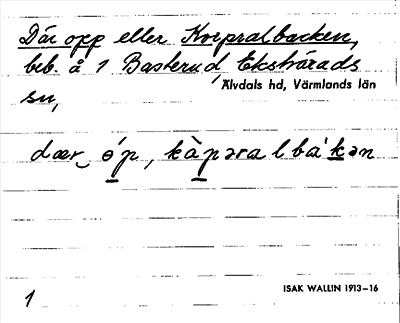 Där opp eller Korpralbacken,
beb. å 1 Basterud, Ekshärads
Älvdals hd, Värmlands län
sn,
dær‿ɵ́p, kàpəralbàkən
ISAK WALLIN 1913–16
1